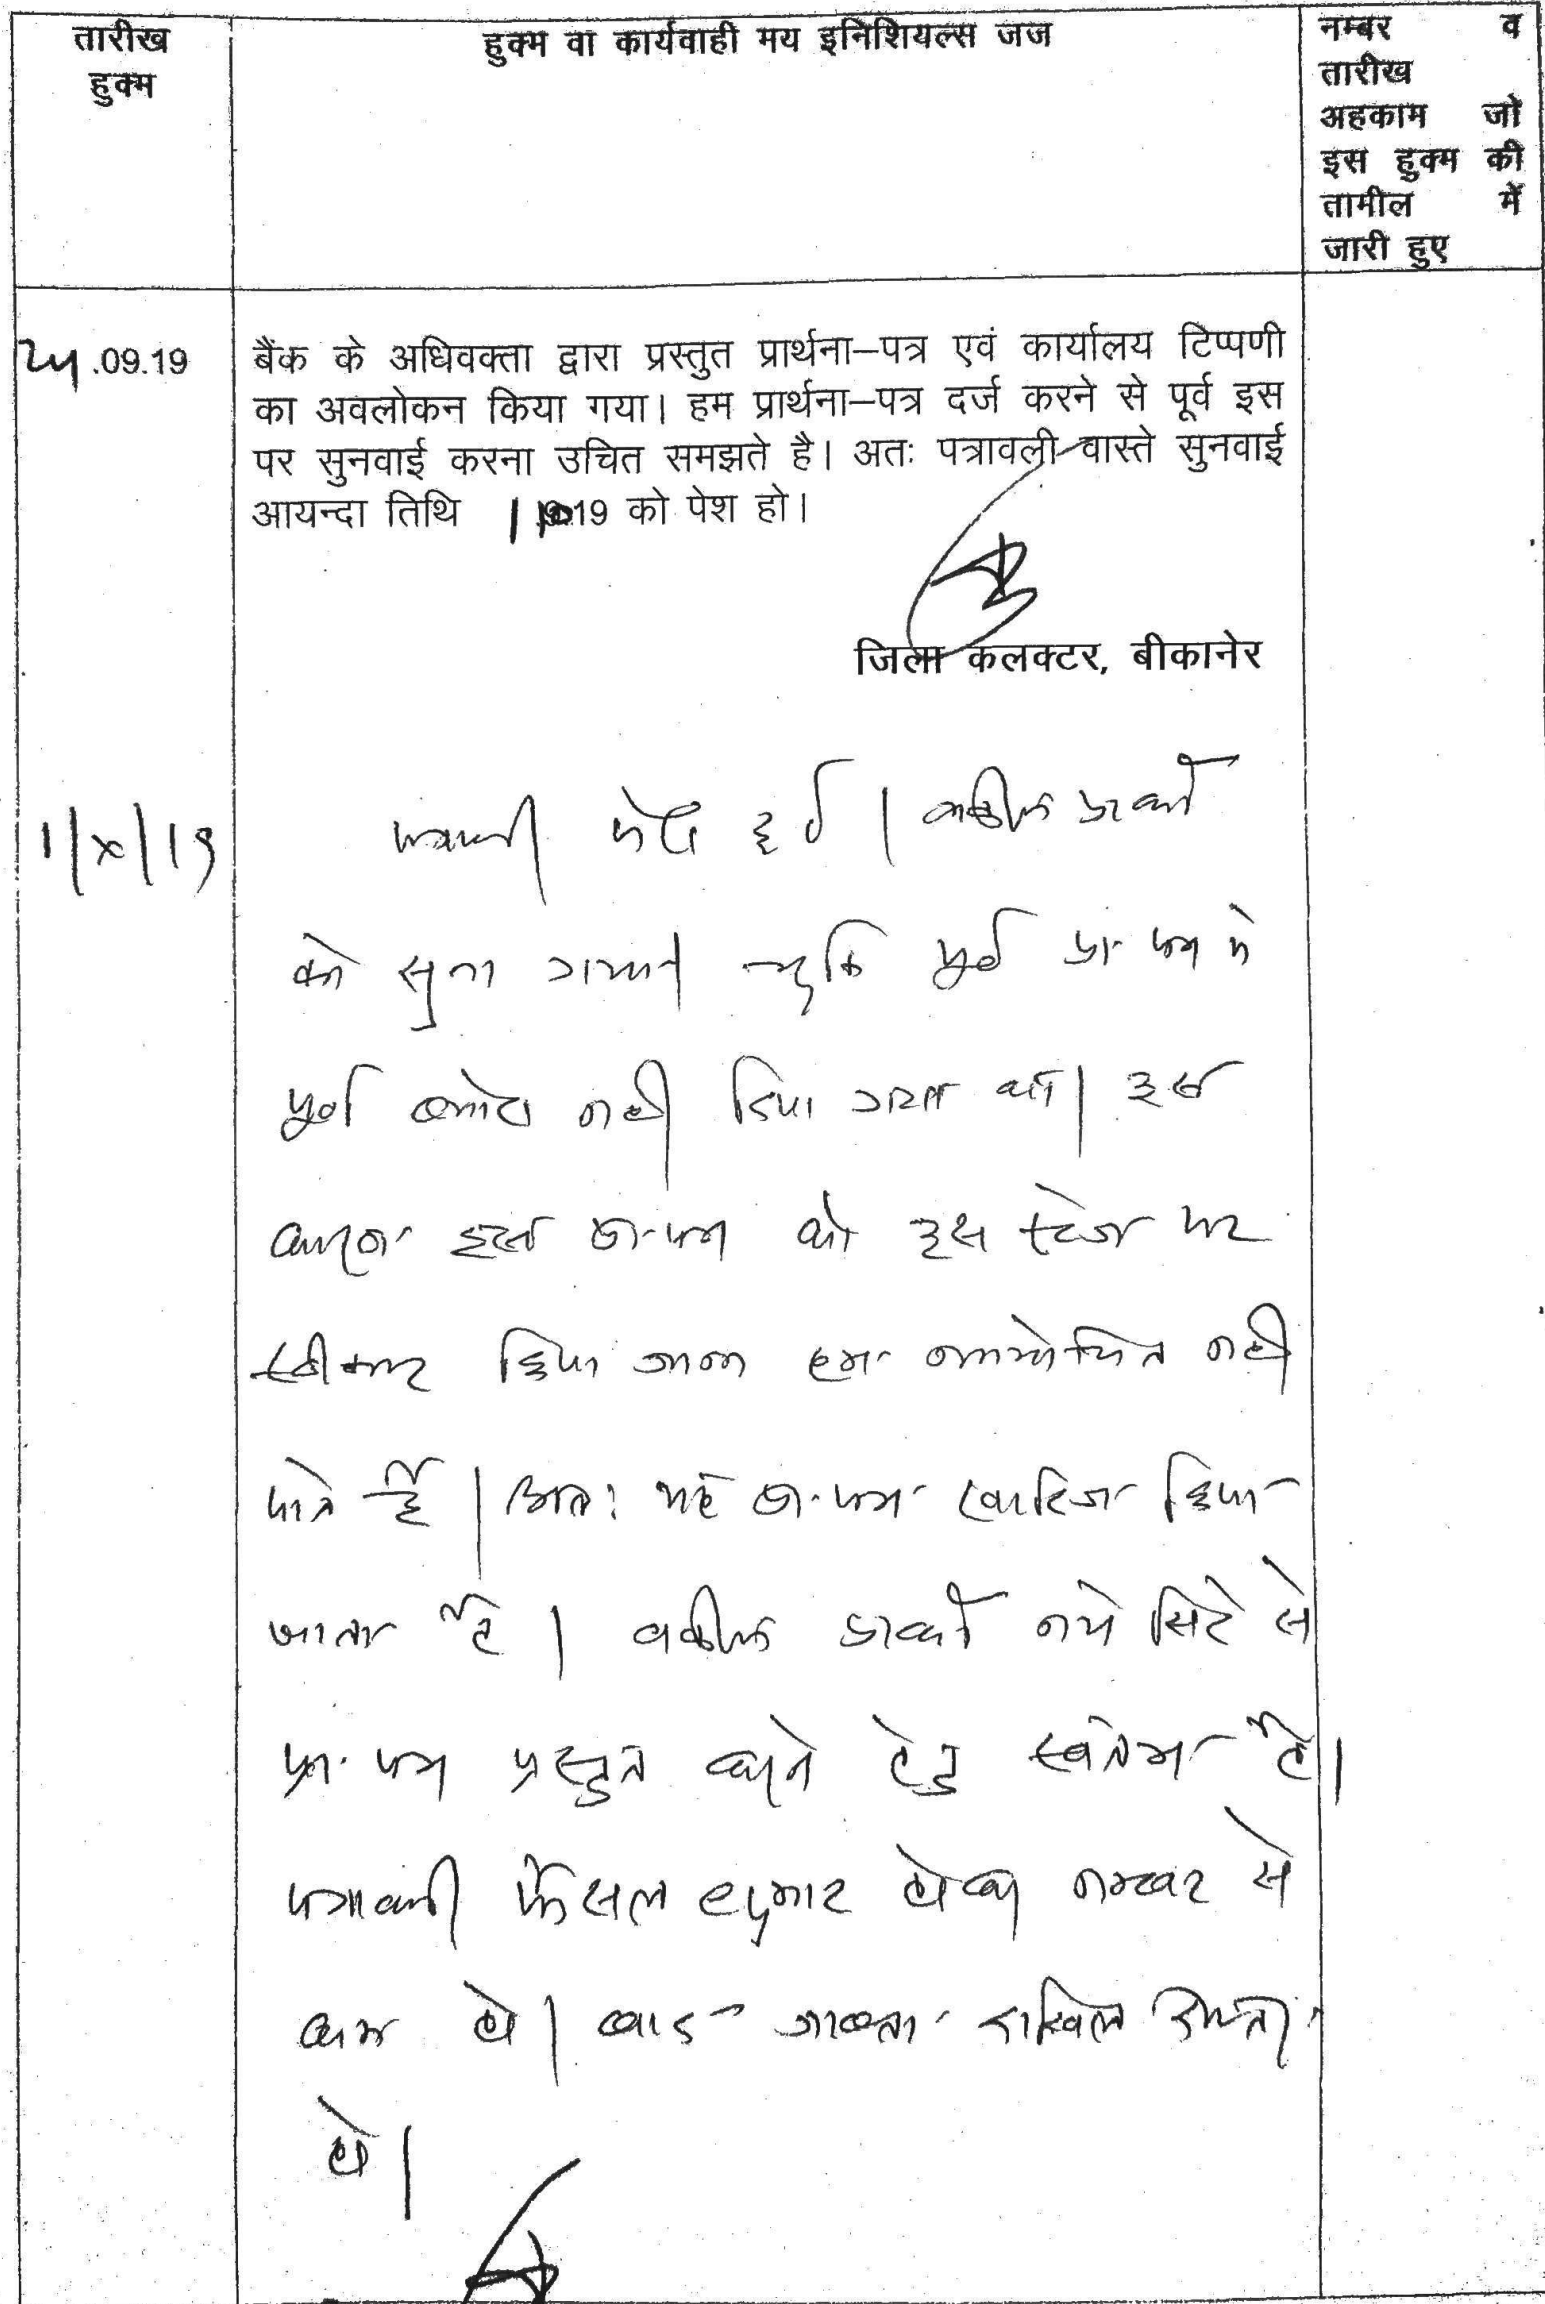 तारीख
हुक्म
हुक्म वा कार्यवाही मय इनिशियल्स जज
नम्बर व
तारीख
अहकाम जो
इस हुक्म की
तामील में
जारी हुए
24.09.19
बैंक के अधिवक्ता द्वारा प्रस्तुत प्रार्थना–पत्र एवं कार्यालय टिप्पणी
का अवलोकन किया गया। हम प्रार्थना–पत्र दर्ज करने से पूर्व इस
पर सुनवाई करना उचित समझते है। अतः पत्रावली वास्ते सुनवाई
आयन्दा तिथि 1.10.19 को पेश हो।
जिला कलक्टर, बीकानेर
1/x/19
पत्रावली पेश हुई। वकील प्रार्थी
को सुना गया। चूंकि पूर्व प्रा. पत्र में
पूर्ण ब्योरा नही दिया गया था। इस
कारण इस प्रा. पत्र को इस स्टेज पर
स्वीकार किया जाना हम न्यायोचित नही
पाते हैं। अतः यह प्रा. पत्र खारिज किया
जाता है। वकील प्रार्थी नये सिरे से
प्रा. पत्र प्रस्तुत करने हेतु स्वतंत्र है।
पत्रावली फैसल शुमार होकर नम्बर से
कम हो। बाद जाब्ता दाखिल दफ्तर
हो।